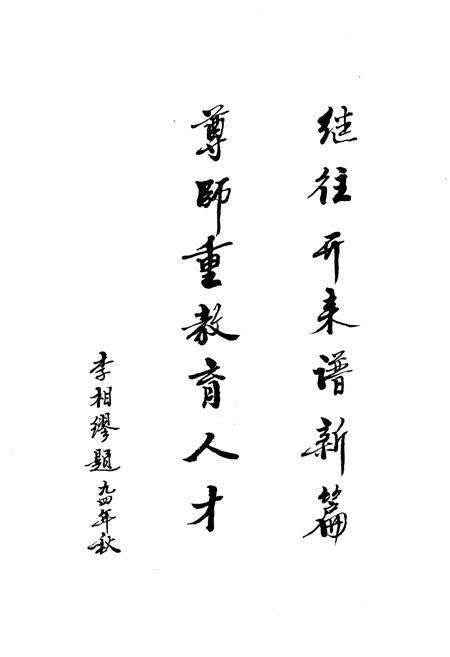 继往开来谱新篇
尊師重教育人才
李相缪題 九四年秋